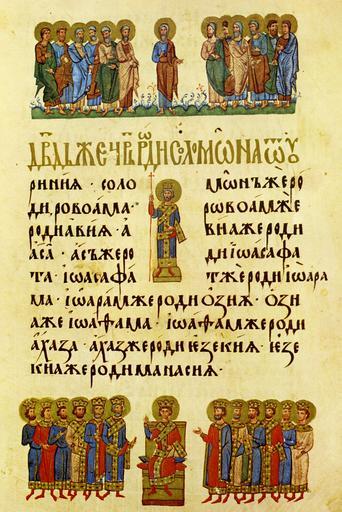 ДВ҃ДЬЖЕЦР҃ЬРОДИСОЛОМѠНАѾОУ
риниѧ · соло мѡнъжеро
дировоама · ровоамже
родиавиѧ · а виажероди
аса · асъжеро диіѡасафа
та · іѡасафа тжеродиіѡара
ма · іѡарамжеродиѻзиѧ · ѻзи
ажеіѡаѳама · іѡаѳамжероди
ахаза · ахазжеродиіезекиѧ · іезе
киажеродиманасиѧ ·